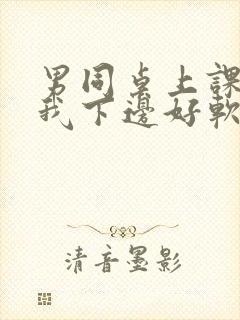 男同桌上課
我下邊好軟
清音墨影